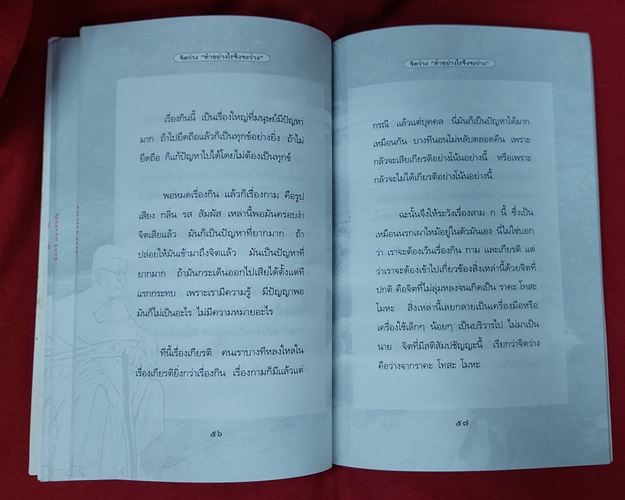 จิตว่าง "ทำอย่างไรจึงจะว่าง"
เรื่องกินนี้ เป็นเรื่องใหญ่ที่มนุษย์มีปัญหา
มาก ถ้าไปยึดถือแล้วก็เป็นทุกข์อย่างยิ่ง ถ้าไม่
ยึดถือ ก็แก้ปัญหาไปได้โดยไม่ต้องเป็นทุกข์
พอหมดเรื่องกิน แล้วก็เรื่องกาม คือรูป
เสียง กลิ่น รส สัมผัส เหล่านี้พอมันครอบงำ
จิตเสียแล้ว มันก็เป็นปัญหาที่ยากมาก ถ้า
ปล่อยให้มันเข้ามาถึงจิตแล้ว มันเป็นปัญหาที่
ยากมาก ถ้ามันกระเด็นออกไปเสียได้ตั้งแต่ที
แรกกระทบ เพราะเรามีความรู้ มีปัญญาพอ
มันก็ไม่เป็นอะไร ไม่มีความหมายอะไร
ทีนี้เรื่องเกียรติ คนเราบางทีหลงใหลใน
เรื่องเกียรติยิ่งกว่าเรื่องกิน เรื่องกามก็มีแล้วแต่
๕๖
จิตว่าง "ทำอย่างไรจึงจะว่าง"
กรณี แล้วแต่บุคคล นี่มันก็เป็นปัญหาได้มาก
เหมือนกัน บางทีนอนไม่หลับตลอดคืน เพราะ
กลัวจะเสียเกียรติอย่างโน้นอย่างนี้ หรือเพราะ
กลัวจะไม่ได้เกียรติอย่างโน้นอย่างนี้
ฉะนั้นจึงให้ระวังเรื่องสาม ก นี้ ซึ่งเป็น
เหมือนนรกเผาไหม้อยู่ในตัวมันเอง นี่ไม่ใช่บอก
ว่า เราจะต้องเว้นเรื่องกิน กาม และเกียรติ แต่
ว่าเราจะต้องเข้าไปเกี่ยวข้องสิ่งเหล่านี้ด้วยจิตที่
ปกติ คือจิตที่ไม่ลุ่มหลงจนเกิดเป็น ราคะ โทสะ
โมหะ สิ่งเหล่านี้เลยกลายเป็นเครื่องมือหรือ
เครื่องใช้เล็กๆ น้อยๆ เป็นบริวารไป ไม่มาเป็น
นาย จิตที่มีสติสัมปชัญญะนี้ เรียกว่าจิตว่าง
คือว่างจากราคะ โทสะ โมหะ
๕๗